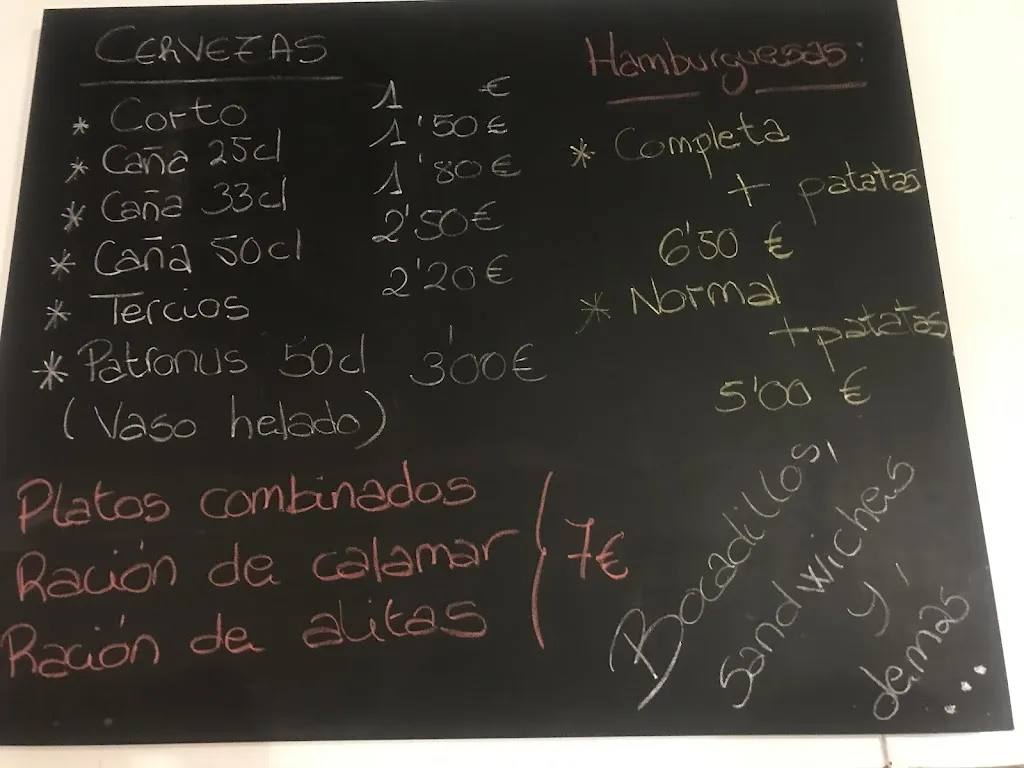 CERVEZAS
* Corto 1 €
* Caña 25cl 1'50 €
* Caña 33cl 1'80 €
* Caña 50cl 2'50 €
* Tercios 2'20 €
* Patronus 50cl 3'00 €
(Vaso helado)
Platos combinados
Ración de calamar
Ración de alitas
7€
Hamburguesas:
* Completa
+ patatas
6'50 €
* Normal
+ patatas
5'00 €
Bocadillos,
sandwicheis
y
demas...